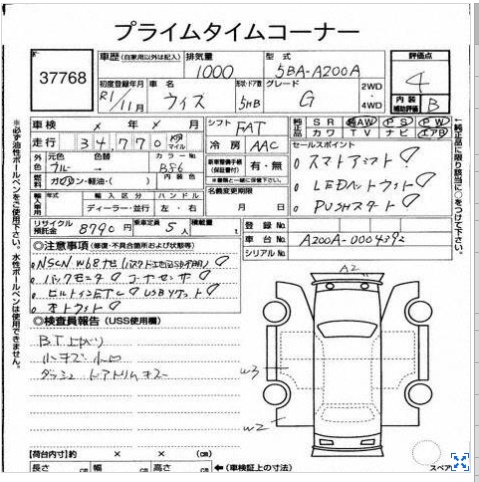 プライムタイムコーナー
37768
車歴 (自家用以外は記入) 排気量 型式 評価点
1000 5BA-A200A 4
初度登録年月 車名 形状・ドア数 グレード 2WD・4WD
R1/11月 ウィズ 5HB G
内装補助評価 B
車検 × 年 × 月 シフト FAT
SR AW PS PW
カワ TV ナビ エアB
走行 34,770 km マイル 冷房 AAC
セールスポイント
外色 元色 色替 カラーNo.
ブルー → B86
スマートアシスト
燃料 ガソリン・軽油・( ) 内装色
有・無
LEDヘッドライト
輸入車用 輸入区分 ハンドル
ディーラー・並行 左・右
名義変更期限
月 日
PUSHスタート
リサイクル預託金 8790円 乗車定員 5人 積載量
登録No.
車台No. A200A-0004392
シリアルNo.
◎注意事項 (修復・不具合箇所および状態等)
NSCN-W68ナビ
バックモニタ コーナーセンサ
ビルトインETC USBソケット
オートライト
◎検査員報告 (USS使用欄)
小キズ 小凹
ダッシュ ドアトリムキズ
A2
W3
W2
【荷台内寸】約 × × (cm)
長さ cm 幅 cm 高さ cm ←(車検証上の寸法)
スペア
※必ず油性ボールペンをご使用下さい。水性ボールペンは使用できません。
←純正品に限り該当に○をつけて下さい。